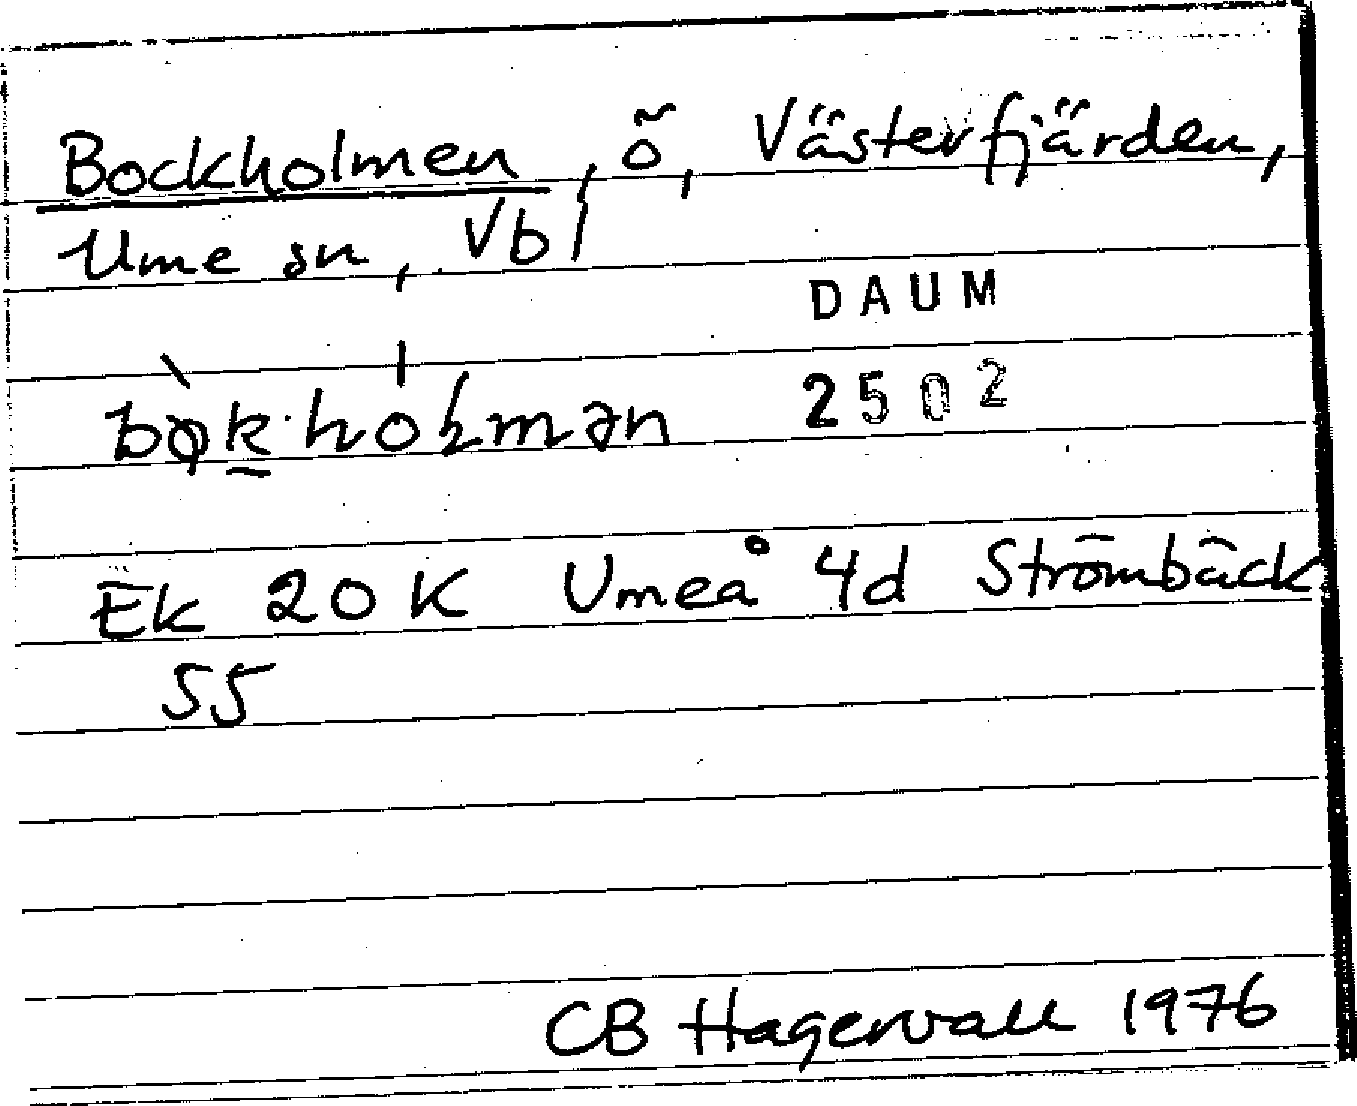 Bockholmen, ö, Västerfjärden,
Ume sn, Vbl
DAUM
2502
Ek 20 K Umeå 4d Strömbäck
55
CB Hagervall 1976